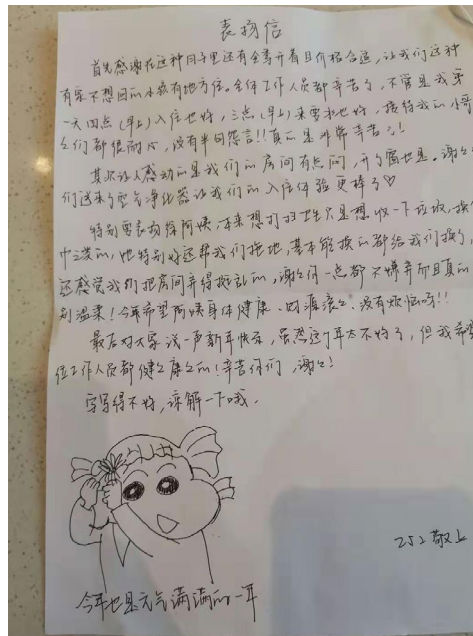 表扬信
首先感谢在这种日子里还有全季开着且价格合适，让我们这种
有家不想回的小孩有地方住。全体工作人员都辛苦了，不管是我第
一天四点(早上)入住也好，三点(早上)来要水也好，接待我的小哥
们都很耐心，没有半句怨言!!真的是非常辛苦了!
其次让人感动的是我们的房间有点闷，开了窗也是。谢谢
们送来了空气净化器让我们的入住体验更棒了♡
特别要表扬保洁阿姨，本来想打扫卫生只是想收一下垃圾，换
巾之类的，她特别好还帮我们拖地，基本能换的都给我们换了，
还感觉我们把房间弄得挺乱的，谢谢你一点都不嫌弃而且真的
别温柔！今年希望阿姨身体健康、财源滚滚、没有烦恼哟!!
最后对大家说一声新年快乐，虽然这个年太不好了，但我希望
位工作人员都健健康康的！辛苦你们，谢谢!
字写得不好，谅解一下哦。
252敬上
今年也是元气满满的一年